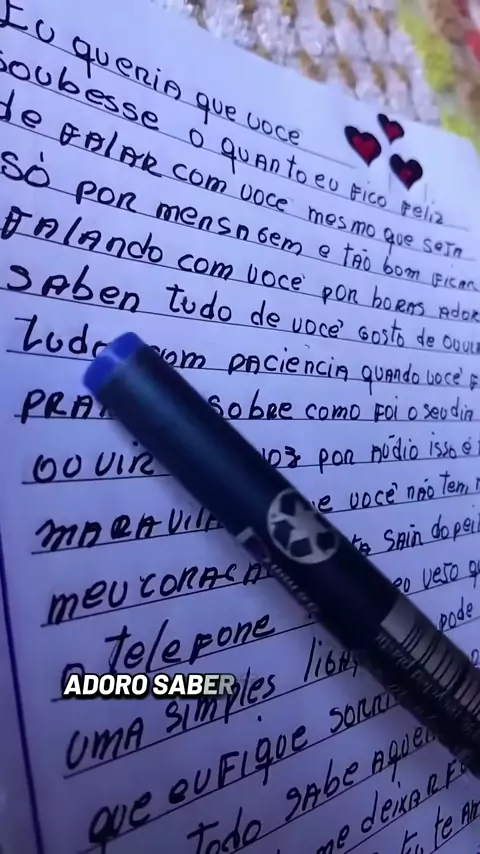 Eu queria que você
soubesse o quanto eu fico feliz
de falar com você mesmo que seja
só por mensagem e tão bom ficar
falando com você por horas ador
saber tudo de você gosto de ouvir
tudo com paciência quando você f
pra sobre como foi o seu dia
ouvir voz por aúdio isso é
e você não tem
ta sair do pei
meu coraca eo vejo q
o telefone pode
ADORO SABER
uma simples liga
que eu fique sorri
todo sabe aque
me deixar f
te am